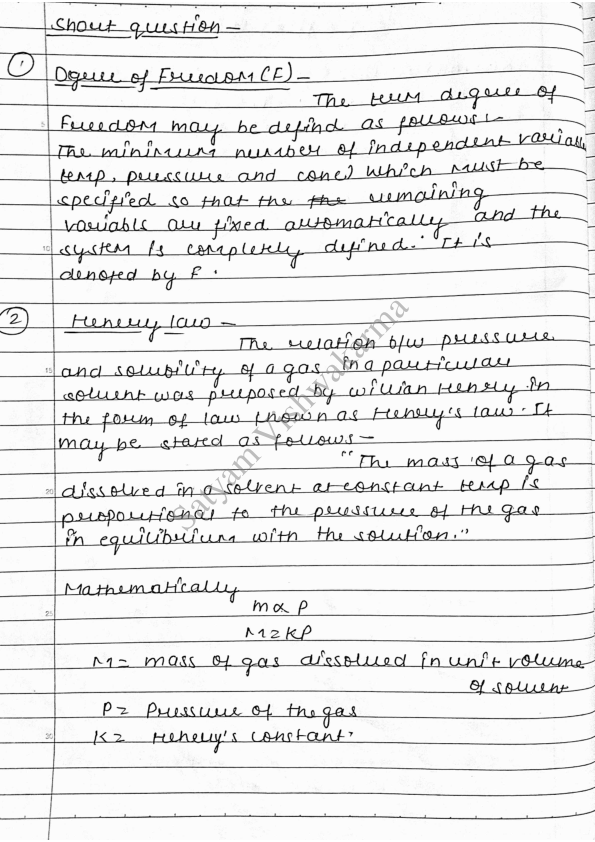 Short question –
① Dgree of Freedom (F) –
The term degree of
Freedom may be defind as follows :-
The minimum number of independent variable
temp, pressure and conc) which must be
specified so that the the remaining
variabls are fixed automatically and the
10 system is completely defined." It is
denoted by F.
② Henery law –
The relation b/w pressure
15 and solubility of a gas in a particular
solvent was proposed by willian Henry in
the form of law known as Henery's law. It
may be stated as follows –
"The mass of a gas
20 dissolved in a solvent at constant temp is
proportional to the pressure of the gas
in equilibrium with the solution."
Mathematically
25 m ∝ P
M = KP
M = mass of gas dissolved in unit volume
of solvent
P = Pressure of the gas
30 K = Henery's constant.
Satyam Vishwakarma